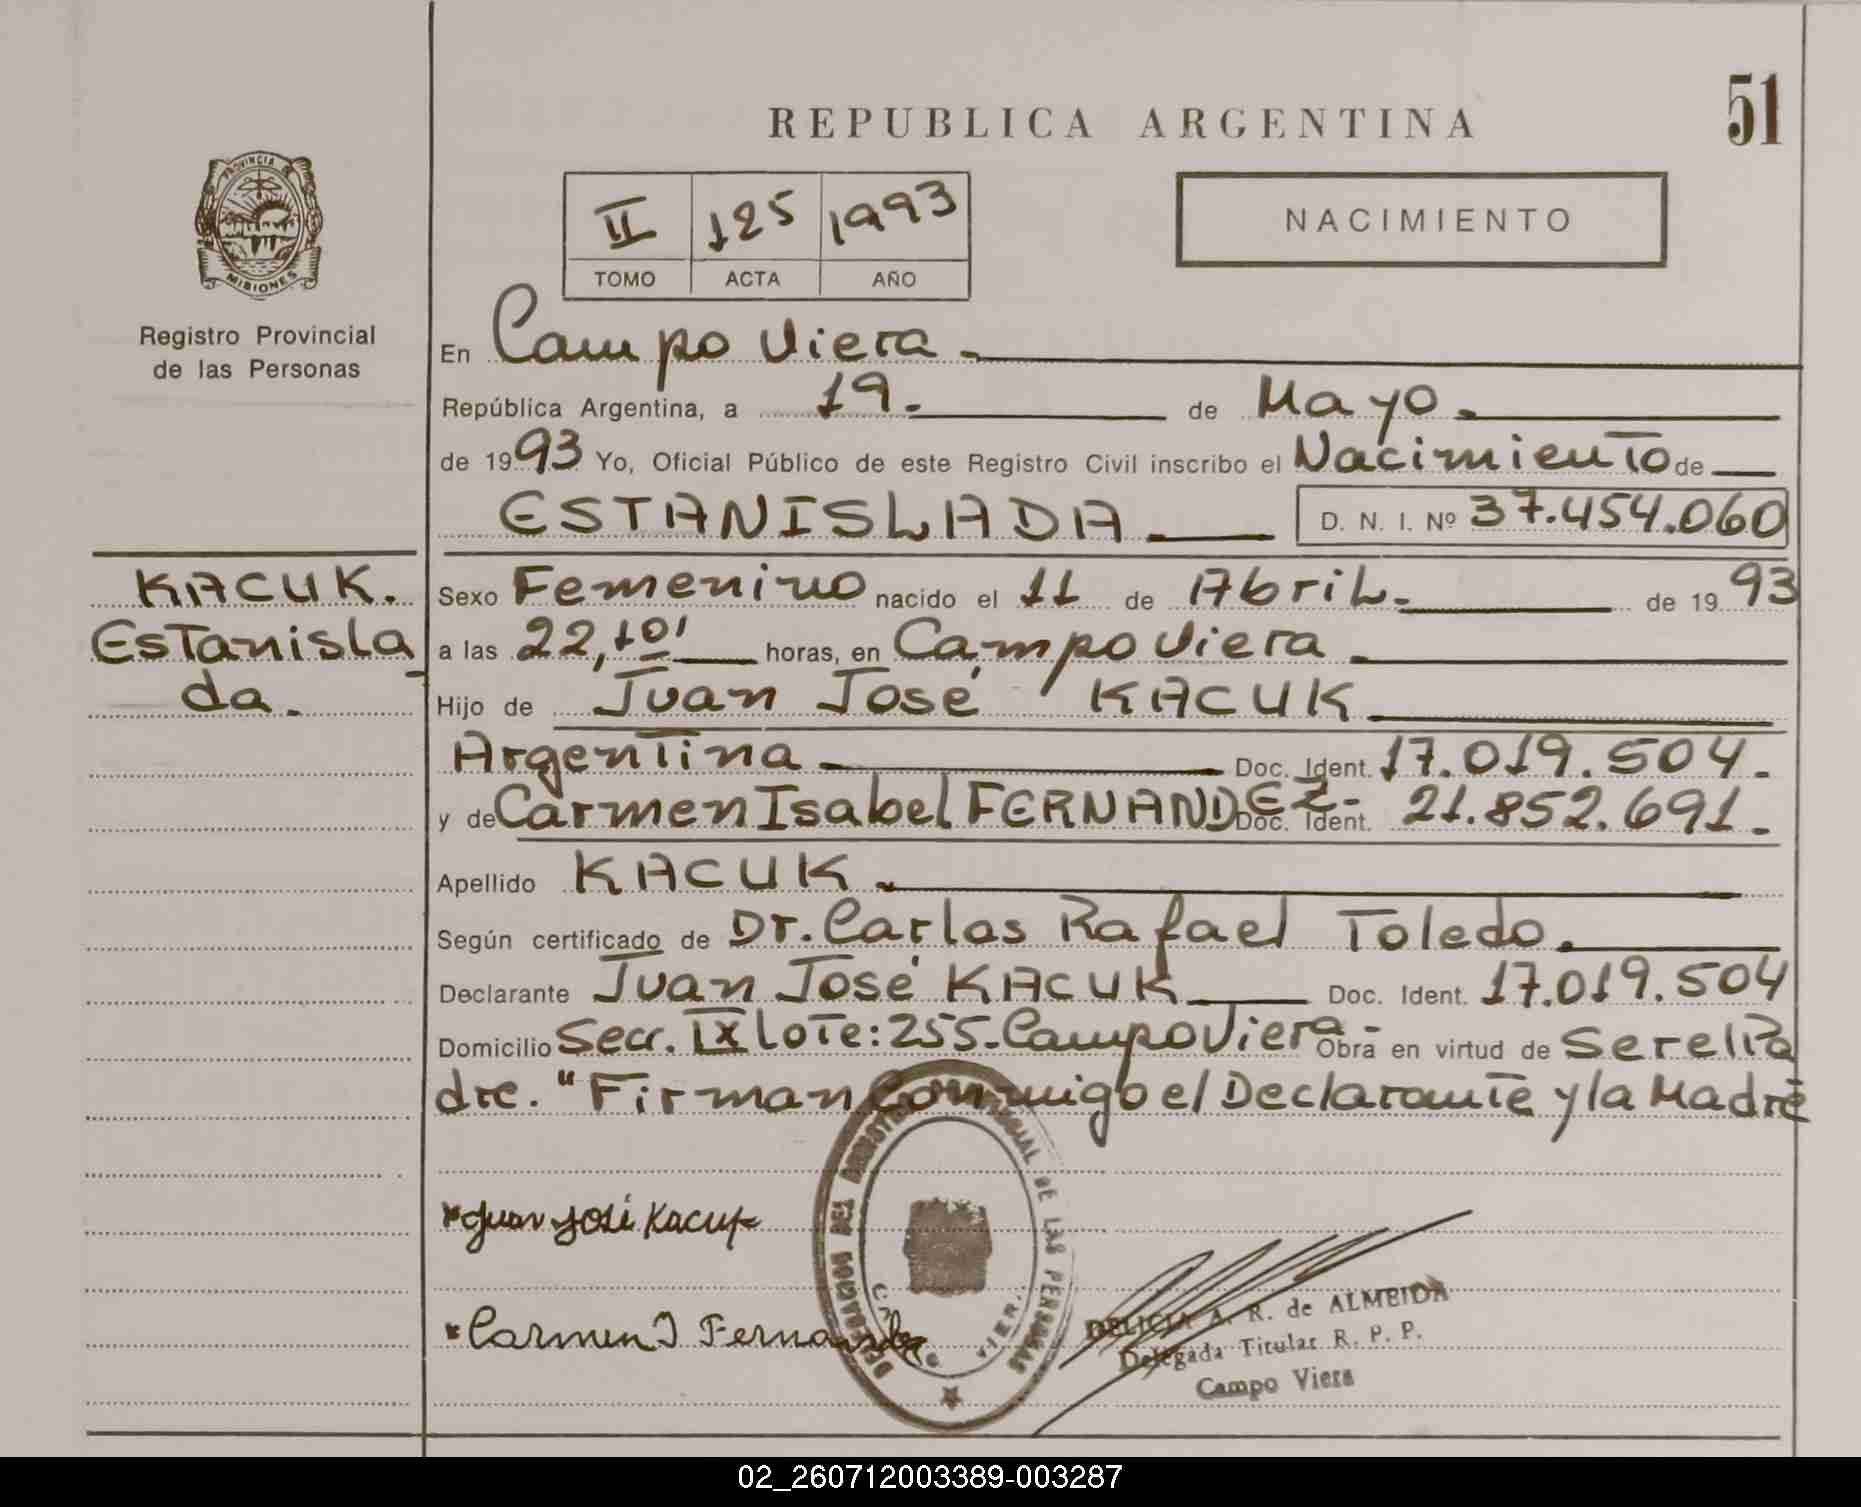 REPUBLICA ARGENTINA
51
PROVINCIA DE
MISIONES
Registro Provincial
de las Personas
II 125 1993
TOMO ACTA AÑO
NACIMIENTO
En Campo Viera.
República Argentina, a 19. de Mayo.
de 1993 Yo, Oficial Público de este Registro Civil inscribo el Nacimiento de
ESTANISLADA D. N. I. Nº 37.454.060
KACUK.
Estanisla
da.
Sexo Femenino nacido el 11 de Abril. de 1993
a las 22,10' horas, en Campo Viera.
Hijo de Juan José KACUK
Argentina Doc. Ident. 17.019.504.
y de Carmen Isabel FERNANDEZ- Doc. Ident. 21.852.691.
Apellido KACUK.
Según certificado de Dr. Carlos Rafael Toledo.
Declarante Juan José KACUK Doc. Ident. 17.019.504
Domicilio Secc. IX lote: 255-Campo Viera- Obra en virtud de ser el Pa
dre. "Firman Conmigo el Declarante y la Madre
Juan José Kacuk
Carmen I Fernandez
DELEGACION DEL REGISTRO PROVINCIAL DE LAS PERSONAS
DELICIA A. R. de ALMEIDA
Delegada Titular R. P. P.
Campo Viera
02_260712003389-003287